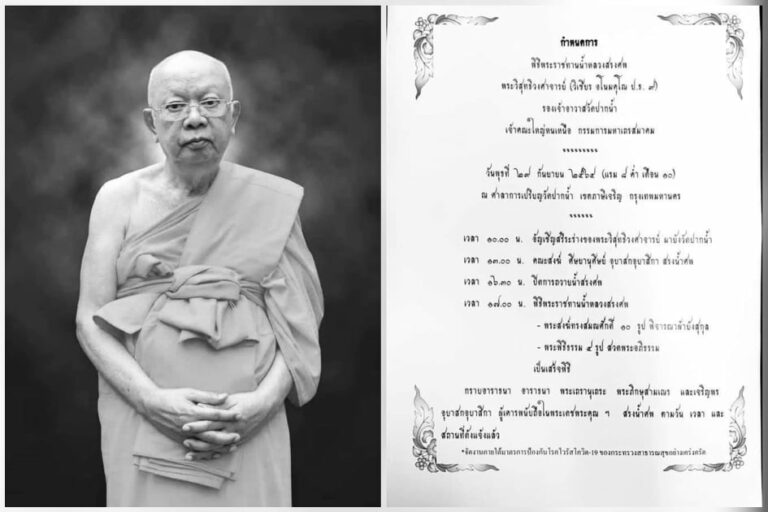 กำหนดการ
พิธีพระราชทานน้ำหลวงสรงศพ
พระวิสุทธิวงศาจารย์ (วิเชียร อโนมคุโณ ป.ธ. ๙)
รองเจ้าอาวาสวัดปากน้ำ
เจ้าคณะใหญ่หนเหนือ กรรมการมหาเถรสมาคม
*********
วันพุธที่ ๒๙ กันยายน ๒๕๖๔ (แรม ๘ ค่ำ เดือน ๑๐)
ณ ศาลาการเปรียญวัดปากน้ำ เขตภาษีเจริญ กรุงเทพมหานคร
******
เวลา ๑๐.๐๐ น. อัญเชิญสรีระร่างของพระวิสุทธิวงศาจารย์ มายังวัดปากน้ำ
เวลา ๑๓.๐๐ น. คณะสงฆ์ ศิษยานุศิษย์ อุบาสกอุบาสิกา สรงน้ำศพ
เวลา ๑๖.๓๐ น. ปิดการถวายน้ำสรงศพ
เวลา ๑๗.๐๐ น. พิธีพระราชทานน้ำหลวงสรงศพ
- พระสงฆ์ทรงสมณศักดิ์ ๑๐ รูป พิจารณาผ้าบังสุกุล
- พระพิธีธรรม ๔ รูป สวดพระอภิธรรม
เป็นเสร็จพิธี
กราบอาราธนา อาราธนา พระเถรานุเถระ พระภิกษุสามเณร และเจริญพร
อุบาสกอุบาสิกา ผู้เคารพนับถือในพระเดชพระคุณ ฯ สรงน้ำศพ ตามวัน เวลา และ
สถานที่ดังแจ้งแล้ว
*จัดงานภายใต้มาตรการป้องกันโรคไวรัสโควิด-19 ของกระทรวงสาธารณสุขอย่างเคร่งครัด